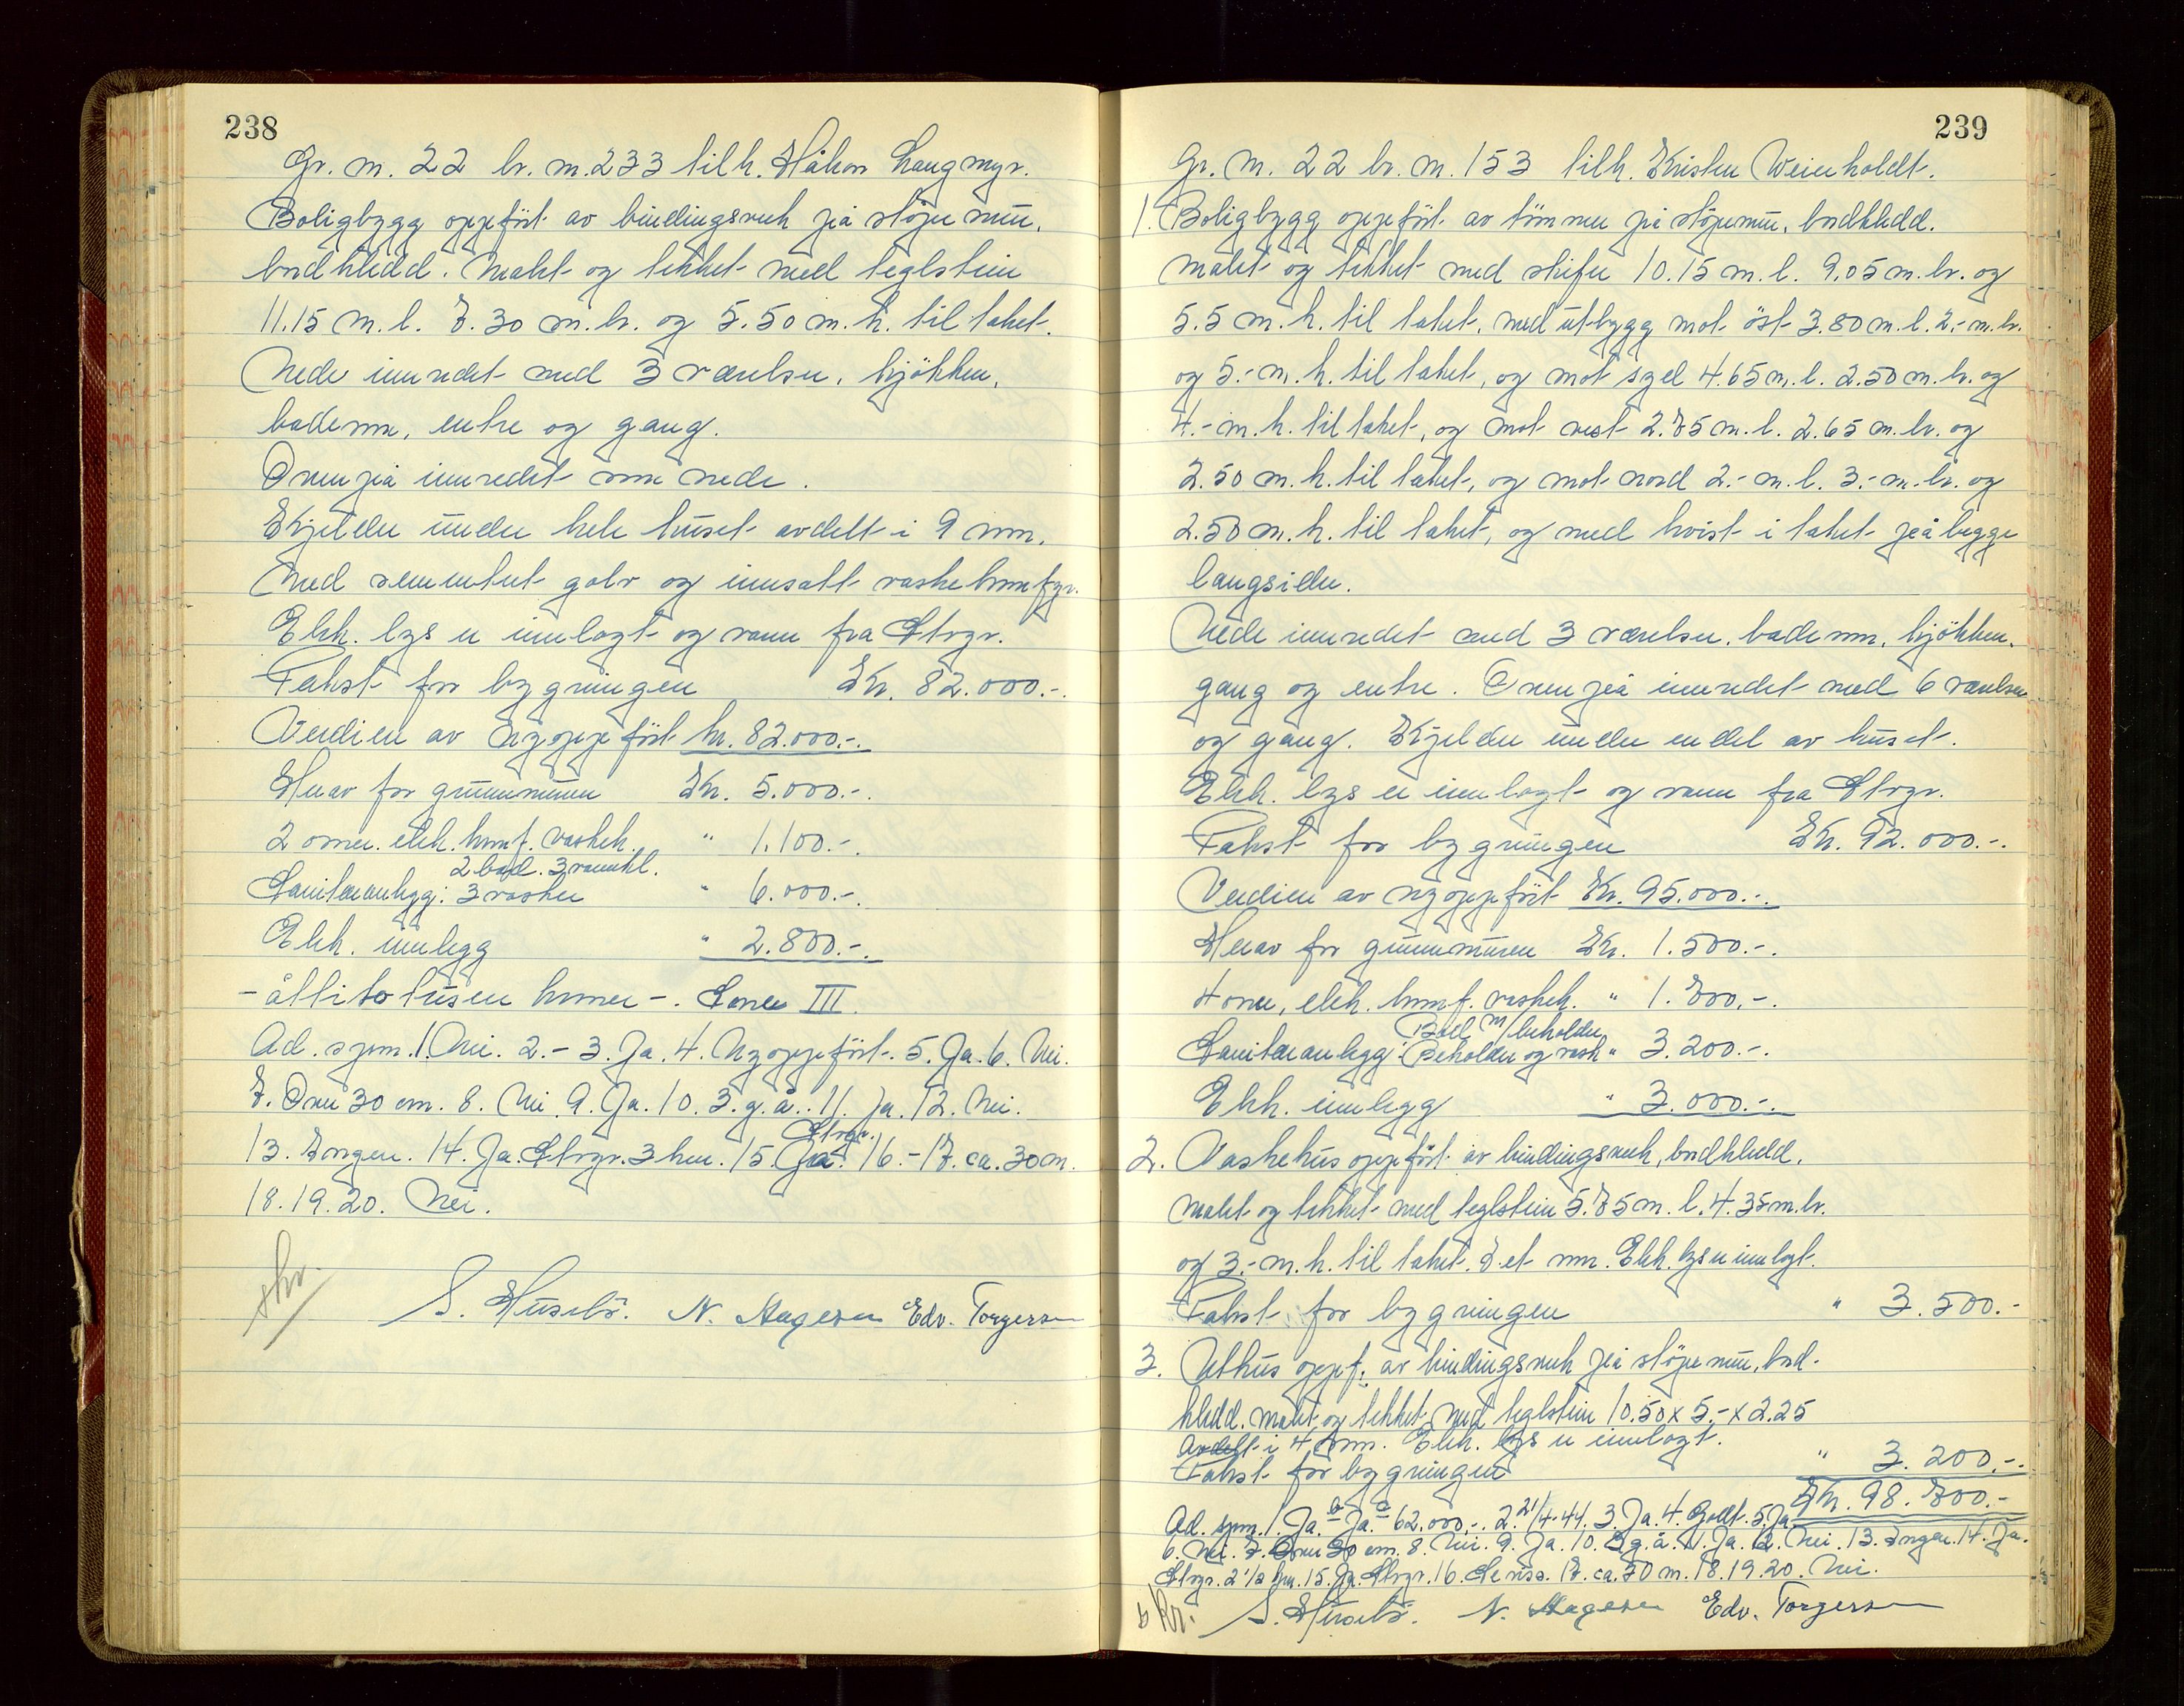 238
Gr. n. 22 br. n. 233 tilh. Håkon Haugmyr.
Boligbygg oppfört av bindingsverk på støpemur,
bordkledd. Malt og tekket med teglstein
11.15 m. l. 7.30 m. br. og 5.50 m. h. til taket.
Nede innredet med 3 værelser, kjökken,
baderom, entre og gang.
Ovenpå innredet som nede.
Kjelder under hele huset avdelt i 9 rom.
Med sementert golv og innsatt vaskekomfyr.
Elek. lys er innlagt og vann fra Stvgr.
Takst for bygningen Kr. 82.000.-.
Verdien av nyoppfört kr. 82.000.-.
Herav for grunnmuren Kr. 5.000.-.
2 ovner. elek. komf. vaskek. " 1.100.-.
2 bad. 3 vannkl.
Sanitæranlegg: 3 vasker " 6.000.-.
Elek. innlegg " 2.800.-.
- åttito tusen kroner -. Sone III.
Ad. spm. 1. Nei. 2.- 3. Ja. 4. Nyoppfört. 5. Ja. 6. Nei.
7. Over 30 cm. 8. Nei. 9. Ja. 10. 3. g. å.. 11. Ja. 12. Nei.
13. Ingen. 14. Ja. Stvgr. 3 km. 15. Ja. Stvgr. 16.- 17. ca. 30 m.
18. 19. 20. Nei.
skr.
S. Husebö. N. Hagesen Edv. Torgersen
239
Gr. n. 22 br. n. 153 tilh. Kristen Weierholdt.
1. Boligbygg oppfört av tömmer på støpemur, bordkledd.
Malt og tekket med skifer 10.15 m. l. 9.05 m. br. og
5.5 m. h. til taket, med utbygg mot öst 3.80 m. l. 2.- m. br.
og 5.- m. h. til taket, og mot syd 4.65 m. l. 2.50 m. br. og
4.- m. h. til taket, og mot vest 2.75 m. l. 2.65 m. br. og
2.50 m. h. til taket, og mot nord 2.- m. l. 3.- m. br. og
2.50 m. h. til taket, og med kvist i taket på begge
langsider.
Nede innredet med 3 værelser, baderom, kjökken,
gang og entre. Ovenpå innredet med 6 værelser
og gang. Kjelder under en del av huset.
Elek. lys er innlagt og vann fra Stvgr.
Takst for bygningen Kr. 92.000.-.
Verdien av nyoppfört Kr. 95.000.-.
Herav for grunnmuren Kr. 1.500.-.
4 ovner, elek. komf. vaskek. " 1.700.-.
Bad m/beholder
Sanitæranlegg: Beholder og vask " 3.200.-.
Elek. innlegg " 3.000.-.
2. Vaskehus oppfört av bindingsverk, bordkledd.
Malt og tekket med teglstein 5.75 m. l. 4.35 m. br.
og 3.- m. h. til taket. I et rom. Elek. lys er innlagt.
Takst for bygningen " 3.500.-
3. Uthus oppf. av bindingsverk på støpemur, bord-
kledd. malt og tekket med teglstein 10.50 x 5.- x 2.25
Avdelt i 4 rom. Elek. lys er innlagt.
Takst for bygningen " 3.200.-.
Kr. 98.700.-
Ad. spm. 1. Ja. b Ja. c 62.000.-. 2. 21/4-44. 3. Ja. 4. Godt. 5. Ja
6. Nei. 7. Over 30 cm. 8. Nei. 9. Ja. 10. 3 g. å. 11. Ja. 12. Nei. 13. Ingen. 14. Ja.
Stvgr. 2 1/2 km. 15. Ja. Stvgr. 16. Se riss. 17. ca. 70 m. 18. 19. 20. Nei.
skr.
S. Husebö. N. Hagesen Edv. Torgersen